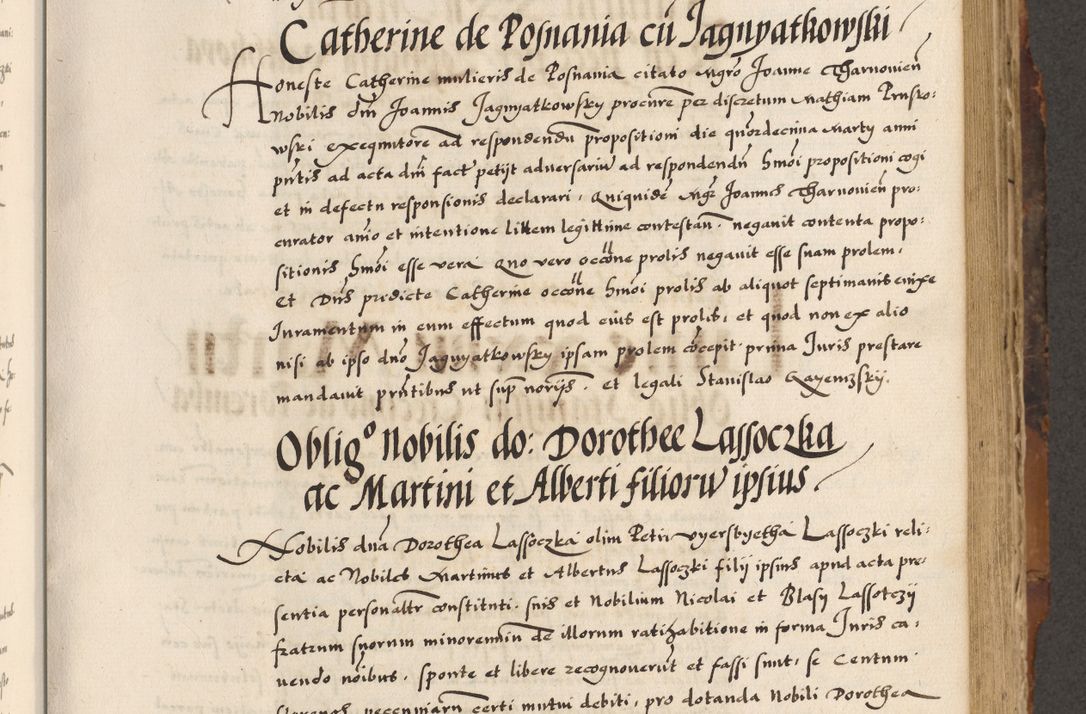 Catherine de Posnania cū Jagnyatkowski
Honeste Catherine mulieris de Posnania citato mgrō Joanne Tharnovien̄
Nobilis dm̄ Joannis Jagnyatkowsky procūre per discretum Mathiam Prusko-
wski exequutorē ad respondendū propositioni die quordecima Marty anni
pn̄tis ad acta dm̄ fact petijt adversariū ad respondendū hm̄oi propositioni cogi
et in defectu responsionis declarari. Quiquidē mgr Joannes Tharnovien̄ pro:
curator aīo et intentione litem legittime contestan̄. negavit contenta propo:
sitionis hm̄oi esse vera. Quo vero occōne prolis negavit esse suam prolem.
Et Dn̄s predicte Catherine occōne hm̄oi prolis ab aliquot septimanis enixe
Juramentum in eum effectum quod eius est prolis, et quod non ex alio
nisi ab ipso dn̄o Jagnyatkowsky ipsam prolem cōcepit prima Juris prestare
mandavit pn̄tibus ut sup̄ norijs. et legali Stanislao Gayewsky.
Obligo nobilis do: Dorothee Lassoczka
ac Martini et Alberti filiorū ipsius
Nobilis dn̄a Dorothea Lassoczka olim Petri Vyersbyetha Lassoczki reli:
cta ac Nobiles Martinus et Albertus Lassoczki filij ipsius apud acta pre:
sentia personaltr constituti. suis et Nobilium Nicolai et Blasy Lassotczy
fratrum suorum minorennium de illorum ratihabitione in forma Juris ca:
vendo nōibus, sponte et libere recognoverunt et fassi sunt, se Centum
florenos pecuniarū certi mutui debiti, pro dotanda Nobili Dorothea